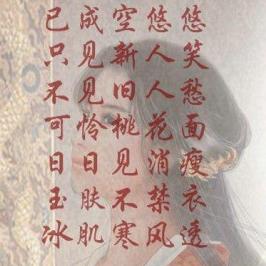 已成空悠悠
只见新人笑
不见旧人愁
可怜桃花面
日日见消瘦
玉肤不禁衣
冰肌寒风透